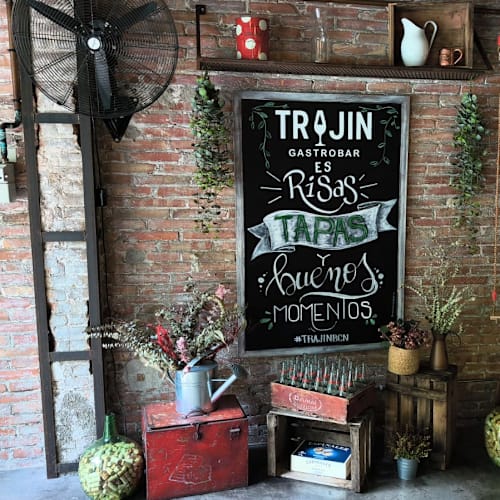 TRAJIN
GASTROBAR
ES
RISAS
TAPAS
Y
buenos
MOMENTOS
#TRAJINBCN